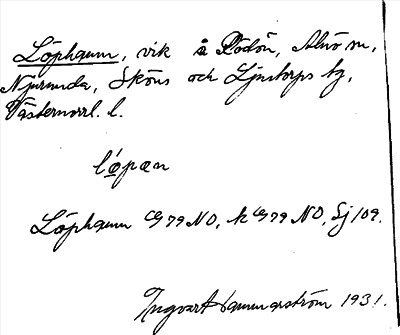 Löphamn, vik å Rödön, Alnö sn,
Njurunda, Sköns och Ljustorps tg,
Västernorrl. l.
lǿpan
Löphamn 79 NO, k 79 NO, Sj 109.
Ingvar Hammarström 1931.